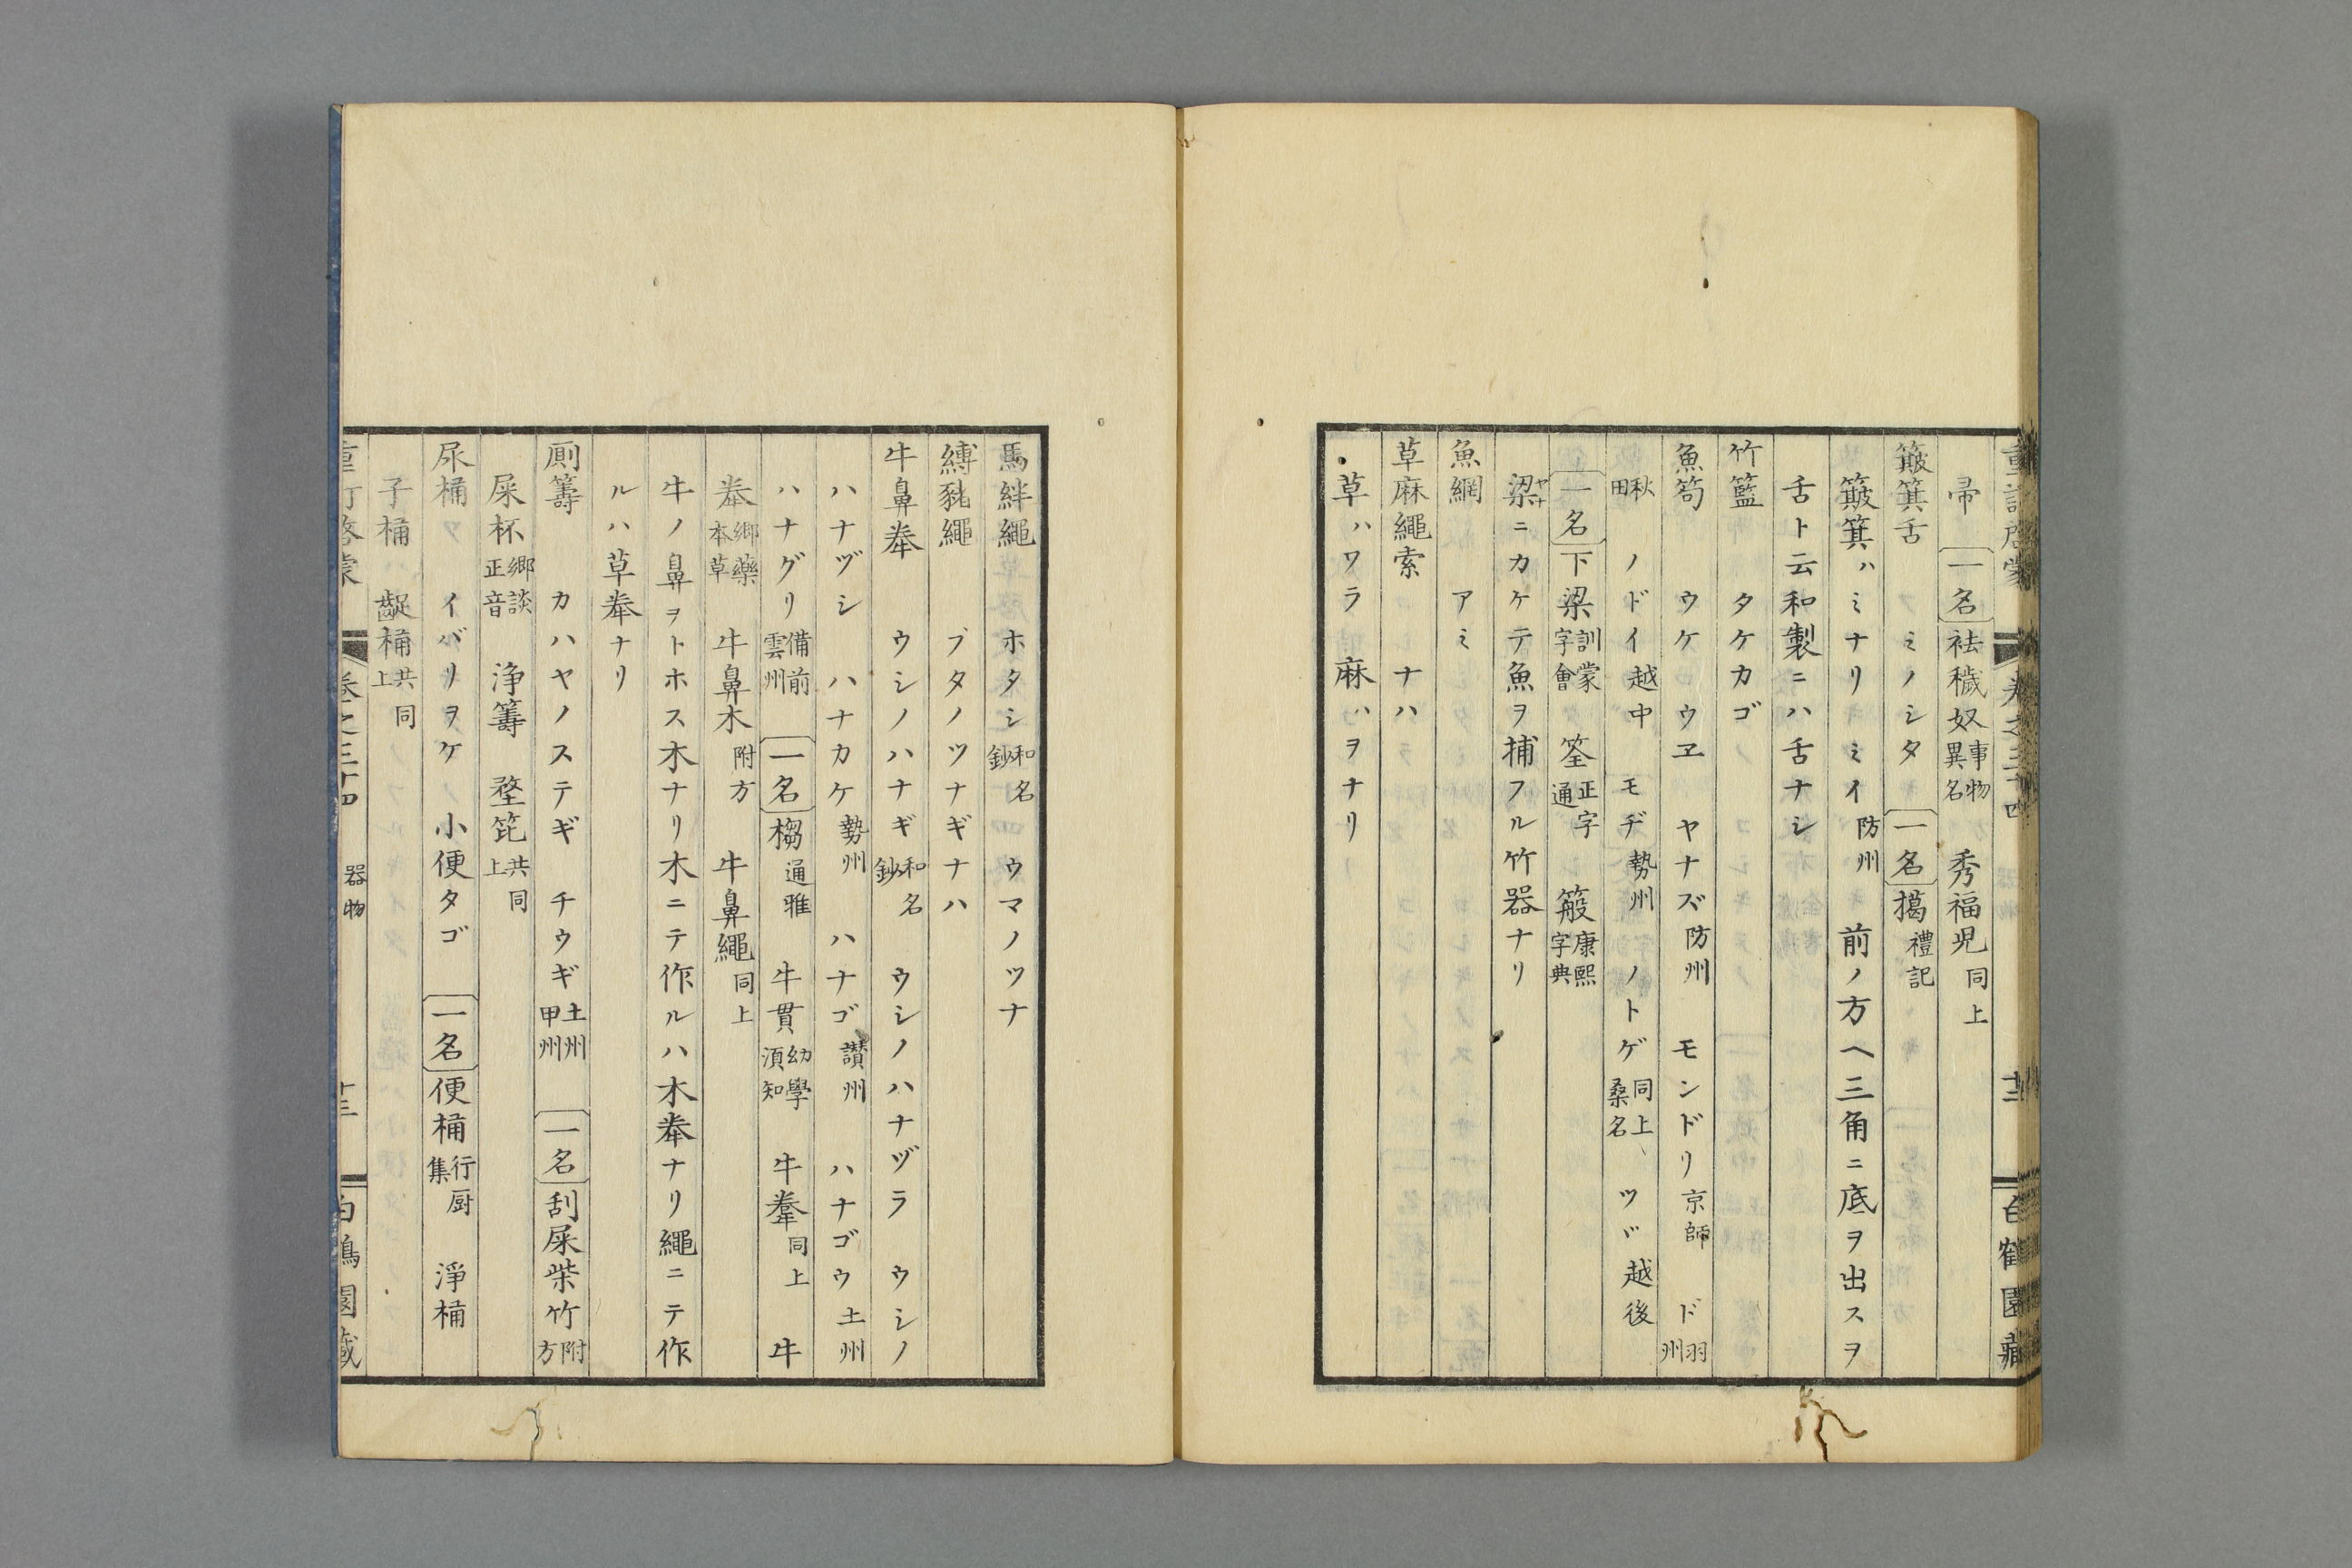 帚 一名 袪穢奴 事物異名 秀福児 同上
簸箕舌 フミノシタ 一名 擖 禮記
簸箕ハミナリミイ 防州 前ノ方ヘ三角ニ底ヲ出スヲ
舌ト云和製ニハ舌ナシ
竹籃 タケカゴ
魚笱 ウケ ウヱ ヤナズ 防州 モンドリ 京師 ド 羽州
秋田 ノドイ 越中 モヂ 勢州 ノトゲ 同上桑名 ツヾ 越後
一名 下梁 訓蒙字會 筌 正字通 䈲 康熙字典
梁ヤナニカケテ魚ヲ捕フル竹器ナリ
魚網 アミ
草麻繩索 ナハ
草ハワラ 麻ハヲナリ
馬絆繩 ホタシ 和名鈔 ウマノツナ
縛豬繩 ブタノツナギナハ
牛鼻牶 ウシノハナギ 和名鈔 ウシノハナヅラ ウシノ
ハナヅシ ハナカケ 勢州 ハナゴ 讃州 ハナゴウ 土州
ハナグリ 備前雲州 一名 㯳 通雅 牛貫 幼學須知 牛桊 同上 牛
牶 郷藥本草 牛鼻木 附方 牛鼻繩 同上
牛ノ鼻ヲトホス木ナリ木ニテ作ルハ木牶ナリ繩ニテ作
ルハ草牶ナリ
厠籌 カハヤノステギ チウギ 土州甲州 一名 刮屎柴竹 附方
屎杯 郷談正音 浄籌 堥笓 共同上
尿桶 イバリヲケ 小便タゴ 一名 便桶 行厨集 淨桶
子桶 齪桶 共同上
卷之三十四 器物 十三